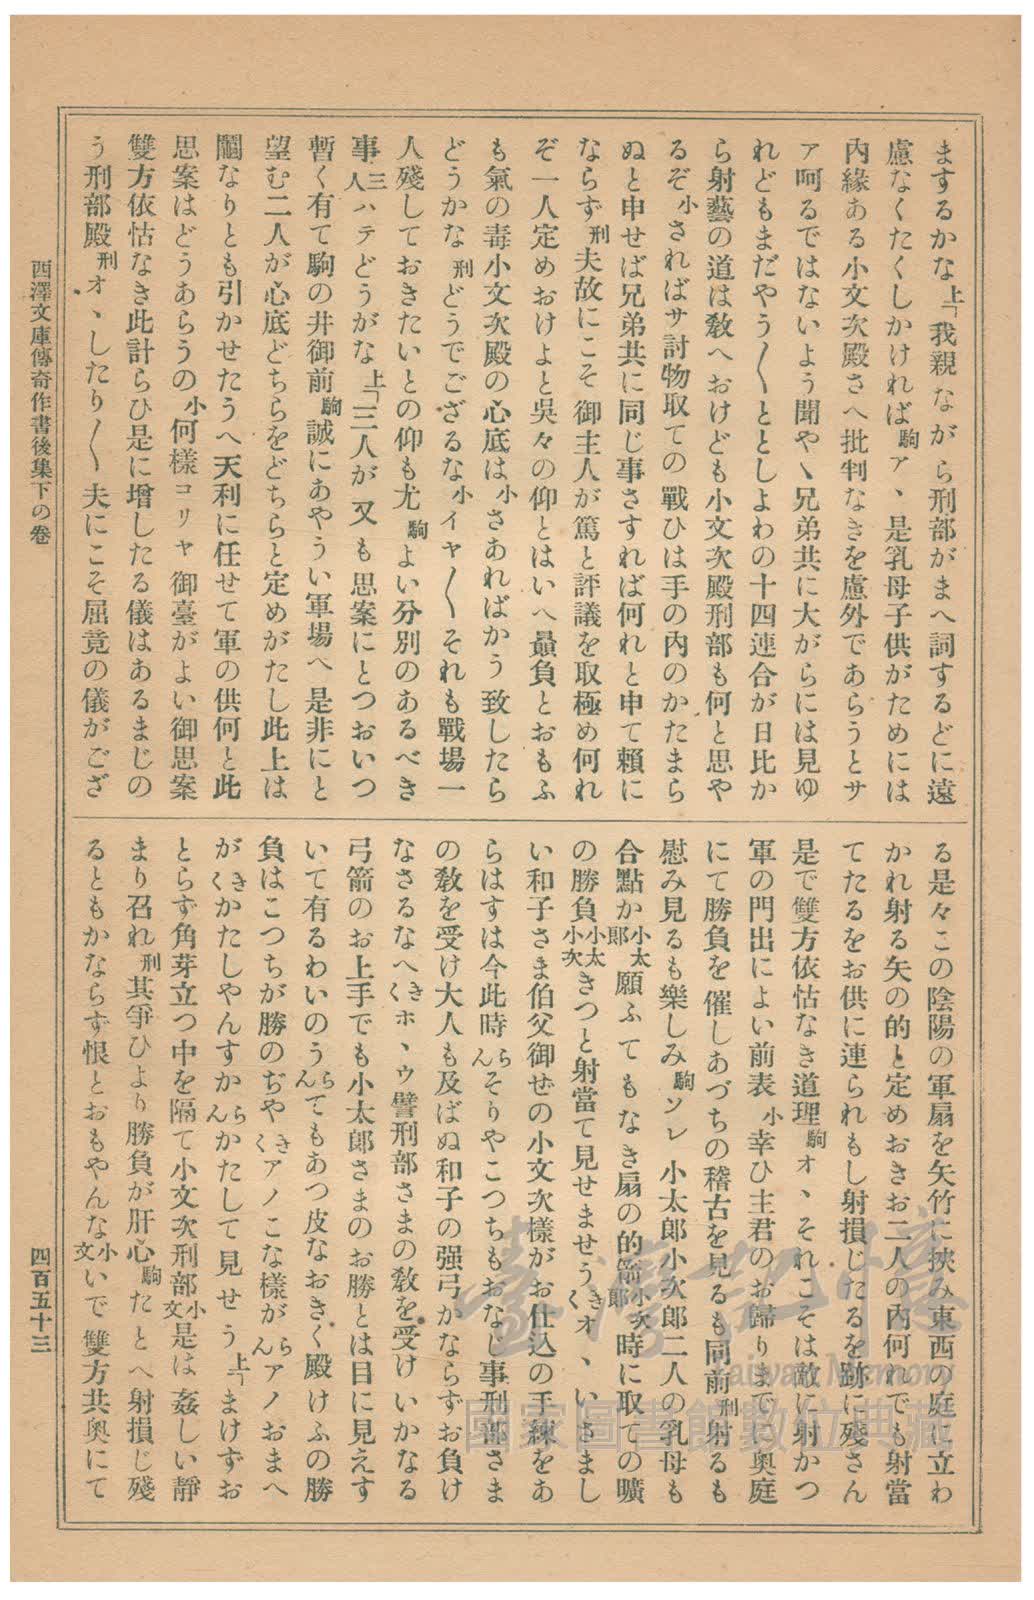 まするかな上「我親ながら刑部がまへ詞するどに遠
慮なくたくしかければ駒ア、是乳母子供がためには
內緣ある小文次殿さへ批判なきを慮外であらうとサ
ア呵るではないよう聞やヽ兄弟共に大がらには見ゆ
れどもまだやう〱ととしよわの十四連合が日比か
ら射藝の道は敎へおけども小文次殿刑部も何と思や
るぞ小さればサ討物取ての戰ひは手の內のかたまら
ぬと申せば兄弟共に同じ事さすれば何れと申て賴に
ならず刑夫故にこそ御主人が篤と評議を取極め何れ
ぞ一人定めおけよと吳々の仰とはいへ贔負とおもふ
も氣の毒小文次殿の心底は小さあればかう致したら
どうかな刑どうでござるな小イヤ〱それも戰場一
人殘しておきたいとの仰も尤駒よい分別のあるべき
事三人ハテどうがな上「三人が又も思案にとつおいつ
暫く有て駒の井御前駒誠にあやうい軍場へ是非にと
望む二人が心底どちらをどちらと定めがたし此上は
鬮なりとも引かせたうへ天利に任せて軍の供何と此
思案はどうあらうの小何樣コリャ御臺がよい御思案
雙方依怙なき此計らひ是に增したる儀はあるまじの
う刑部殿刑オヽしたり〱夫にこそ屈竟の儀がござ
る是々この陰陽の軍扇を矢竹に挾み東西の庭に立わ
かれ射る矢の的と定めおきお二人の內何れでも射當
てたるをお供に連られもし射損じたるを跡に殘さん
是で雙方依怙なき道理駒オヽそれこそは敵に射かつ
軍の門出によい前表小幸ひ主君のお歸りまでに奧庭
にて勝負を催しあづちの稽古を見るも同前刑射るも
慰み見るも樂しみ駒ソレ小太郞小次郞二人の乳母も
合點か小太郞願ふてもなき扇の的箭小次郞時に取ての曠
の勝負小太小次きつと射當て見せませうきくオヽいさまし
い和子さま伯父御ぜの小文次樣がお仕込の手練をあ
らはすは今此時らんそりやこつちもおなじ事刑部さま
の敎を受け大人も及ばぬ和子の强弓かならずお負け
なさるなへきくホヽウ譬刑部さまの敎を受けいかなる
弓箭のお上手でも小太郞さまのお勝とは目に見えす
いて有るわいのうらんてもあつ皮なおきく殿けふの勝
負はこつちが勝のぢやきくアノこな樣がらんアノおまへ
がきくかたしやんすからんかたして見せう上「まけずお
とらず角芽立つ中を隔て小文次刑部小文是は姦しい靜
まり召れ刑其爭ひより勝負が肝心駒たとへ射損じ殘
るともかならず恨とおもやんな小文いで雙方共奧にて
西澤文庫傳奇作書後集下の卷
四百五十三
臺灣記憶
Taiwan Memory
國家圖書館數位典藏